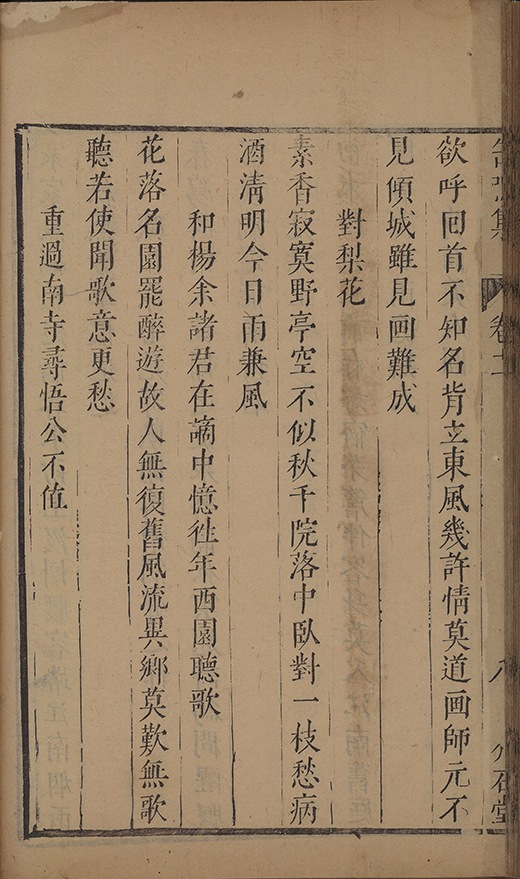 卷十二
八
欲呼回首不知名背立東風幾許情莫道画師元不
見傾城雖見画難成
對梨花
素香寂寞野亭空不似秋千院落中臥對一枝愁病
酒清明今日雨兼風
和楊余諸君在謫中憶徃年西園聽歌
花落名園罷醉遊故人無復舊風流異鄉莫歎無歌
聽若使聞歌意更愁
重過南寺尋悟公不值